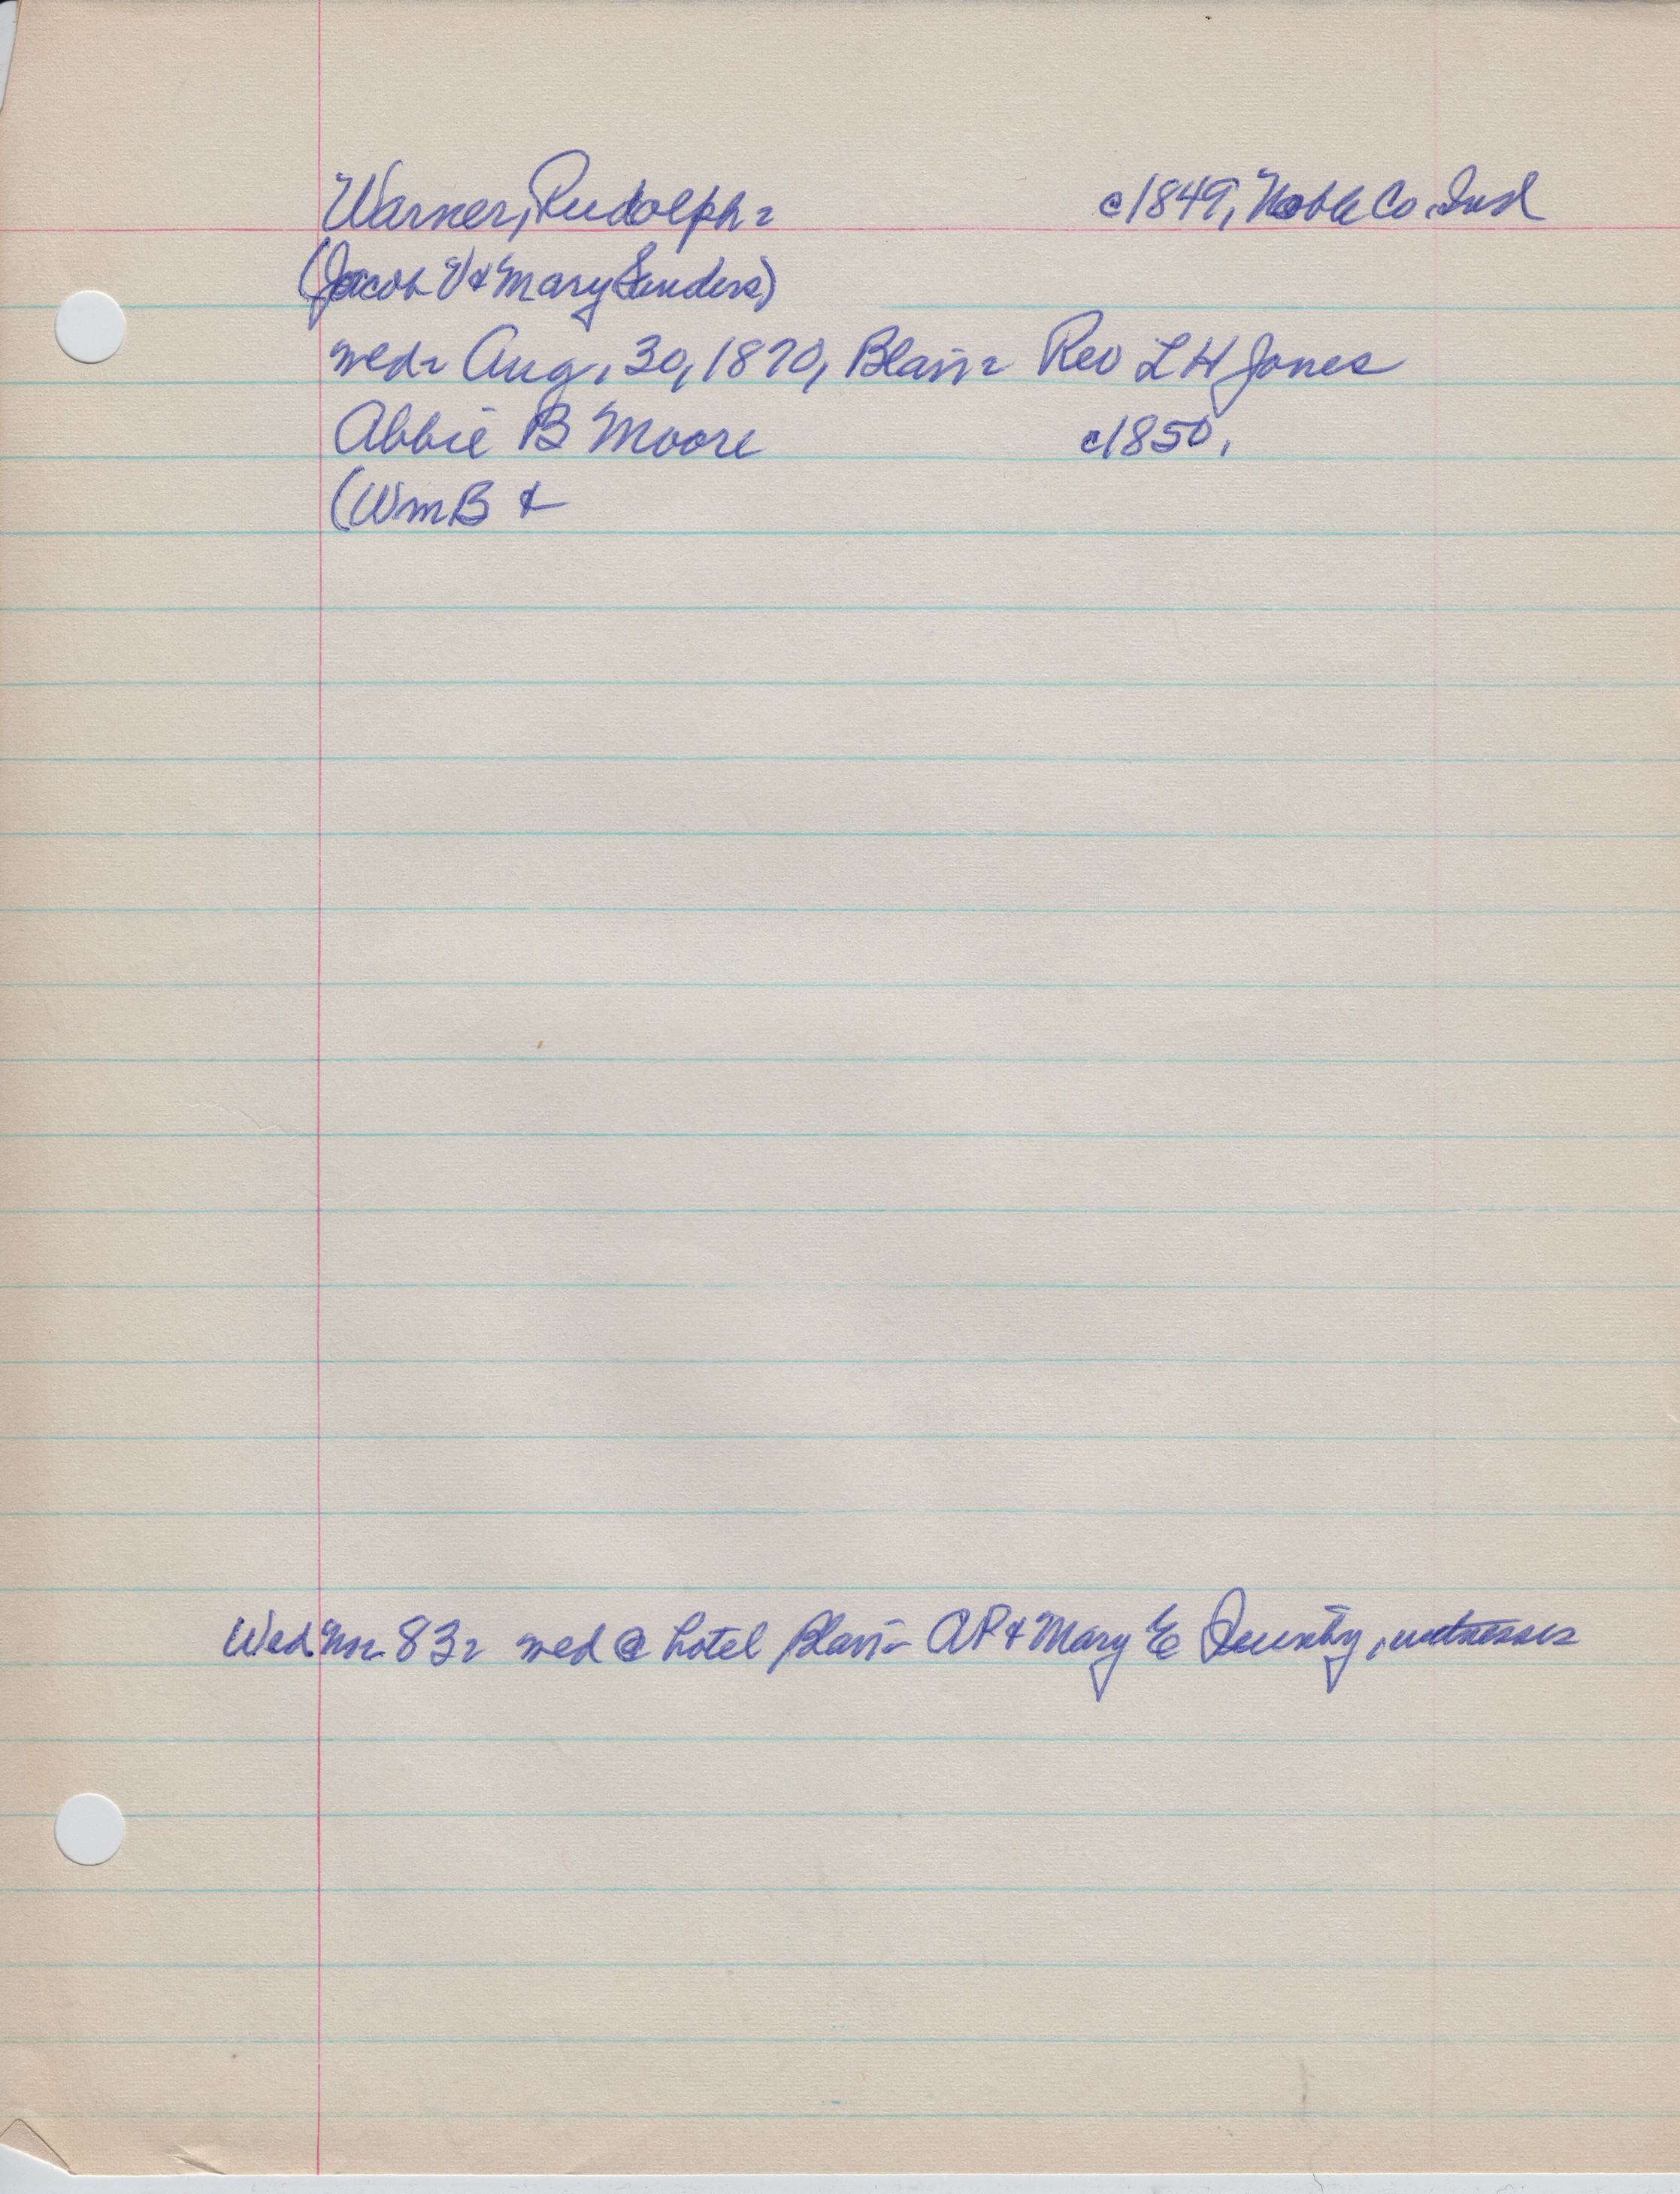 Warner, Rudolph- c1849, Noble Co. Ind
(Jacob V & Mary Sanders)
wed- Aug, 30, 1870, Blair- Rev L H Jones
Abbie B Moore c1850,
(Wm B &
Wed 83- wed @ hotel Blair- AP & Mary E, witnesses